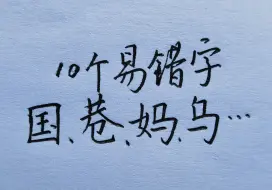 10个易错字
国、巷、妈、乌…